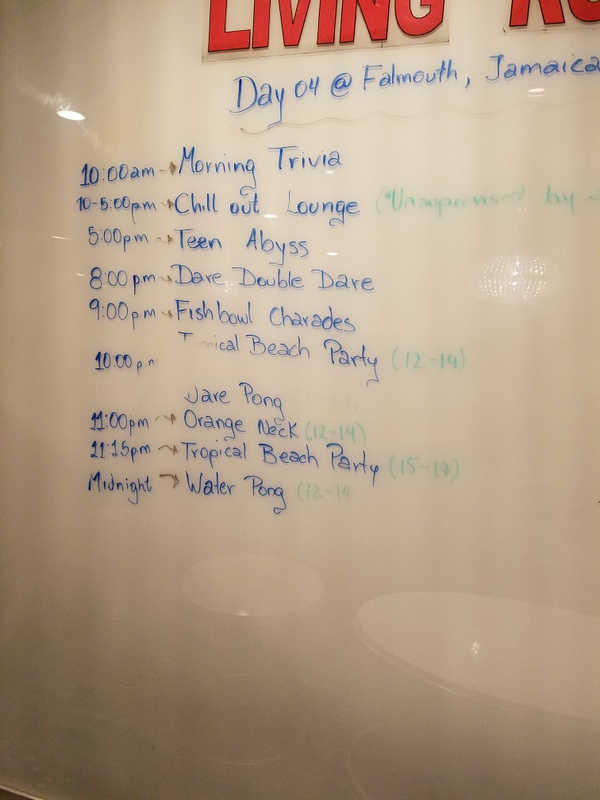 LIVING
Day 04 @ Falmouth, Jamaica
10:00am → Morning Trivia
10-5:00pm → Chill out Lounge (*Unsupervised by
5:00pm → Teen Abyss
8:00pm → Dare Double Dare
9:00pm → Fishbowl Charades
10:00 p T ical Beach Party (12-14)
Dare Pong
11:00pm → Orange Neck (12-14)
11:15pm → Tropical Beach Party (15-17)
Midnight → Water Pong (12-14